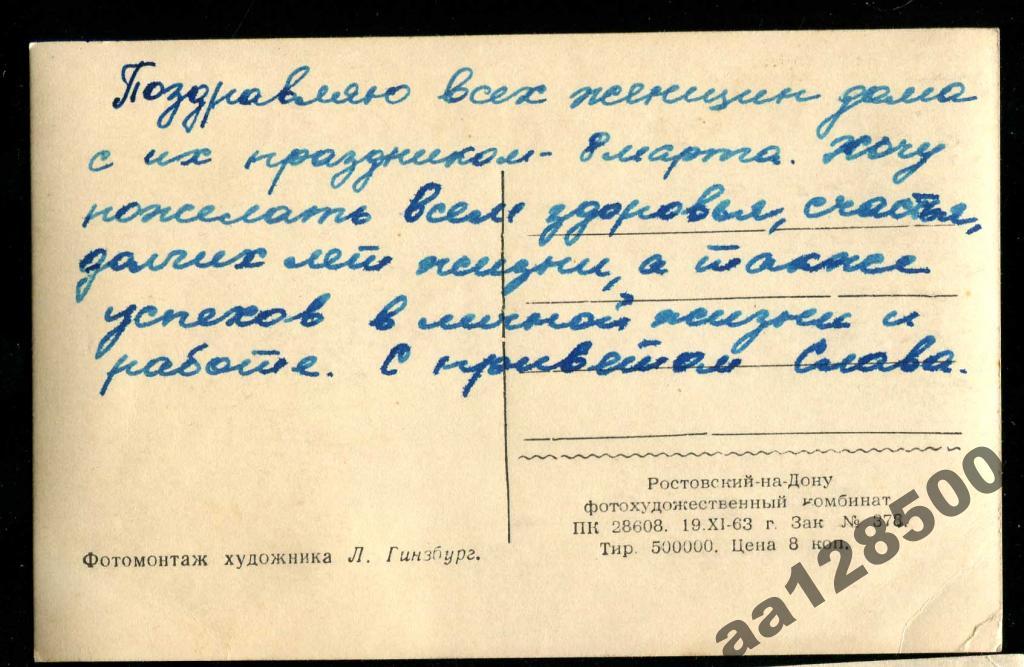 Поздравляю всех женщин дома
с их праздником - 8 марта. Хочу
пожелать всем здоровья, счастья,
долгих лет жизни, а также
успехов в личной жизни и
работе. С приветом Слава.
Ростовский-на-Дону
фотохудожественный комбинат
ПК 28608. 19.XI-63 г. Зак № 378.
Тир. 500000. Цена 8 коп.
Фотомонтаж художника Л. Гинзбург.
aa128500